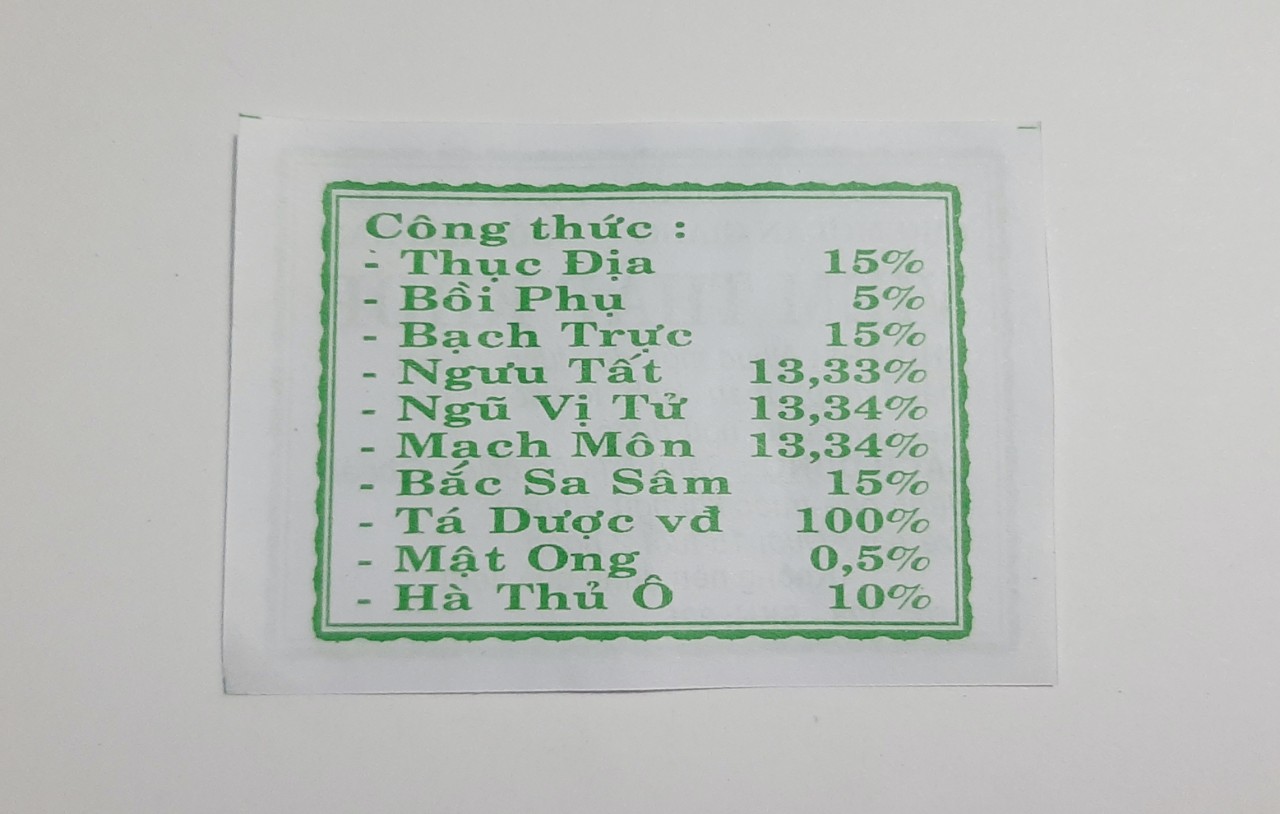 Công thức :
- Thục Địa 15%
- Bồi Phụ 5%
- Bạch Trực 15%
- Ngưu Tất 13,33%
- Ngũ Vị Tử 13,34%
- Mạch Môn 13,34%
- Bắc Sa Sâm 15%
- Tá Dược vđ 100%
- Mật Ong 0,5%
- Hà Thủ Ô 10%